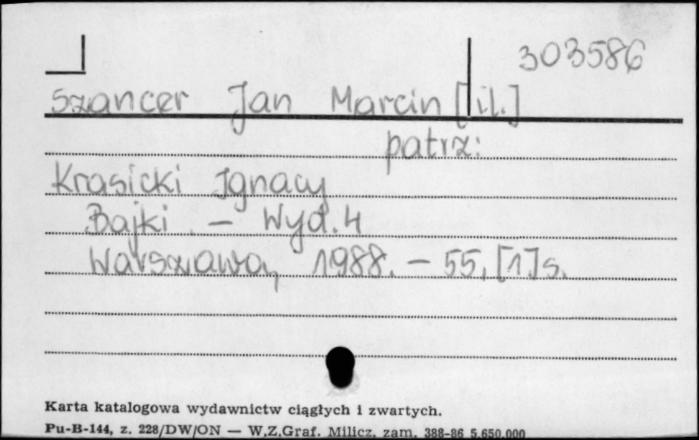 303586
Szancer Jan Marcin [il.]
patrz:
Krasicki Ignacy
Bajki. - Wyd. 4
Warszawa, 1988. - 55, [1] s.
Karta katalogowa wydawnictw ciągłych i zwartych.
Pu-B-144, z. 228/DW/ON — W.Z.Graf. Milicz, zam. 388-86 5.650.000